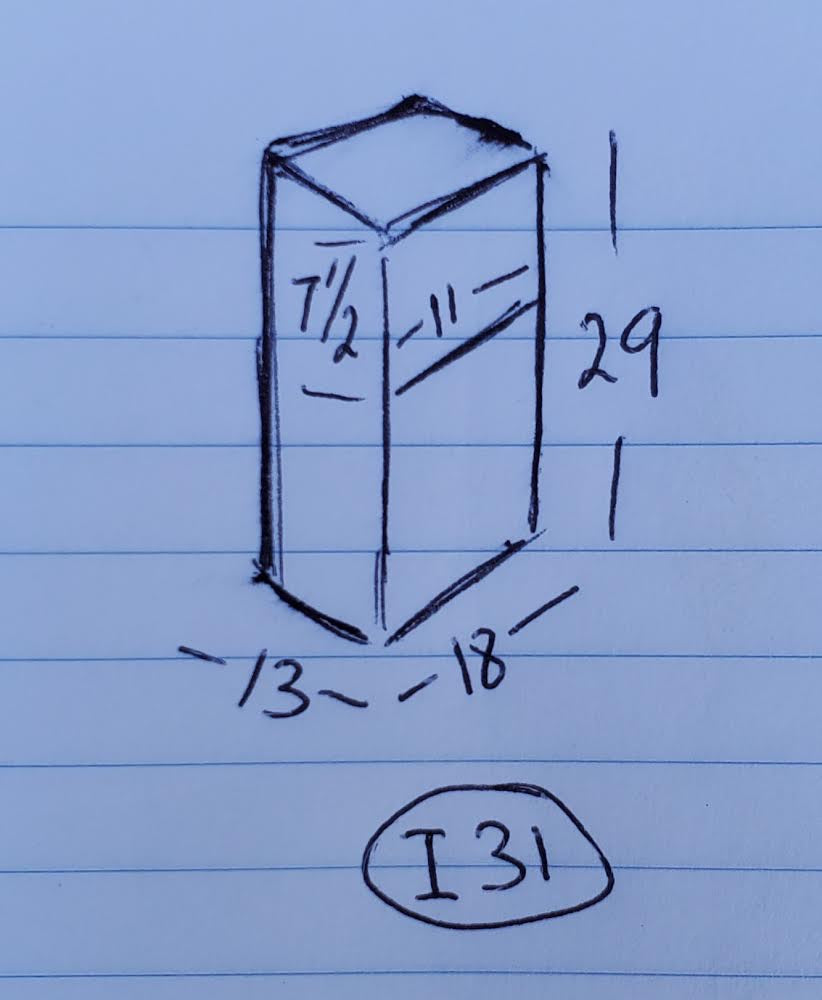 7 1/2
11
29
13
18
I 31